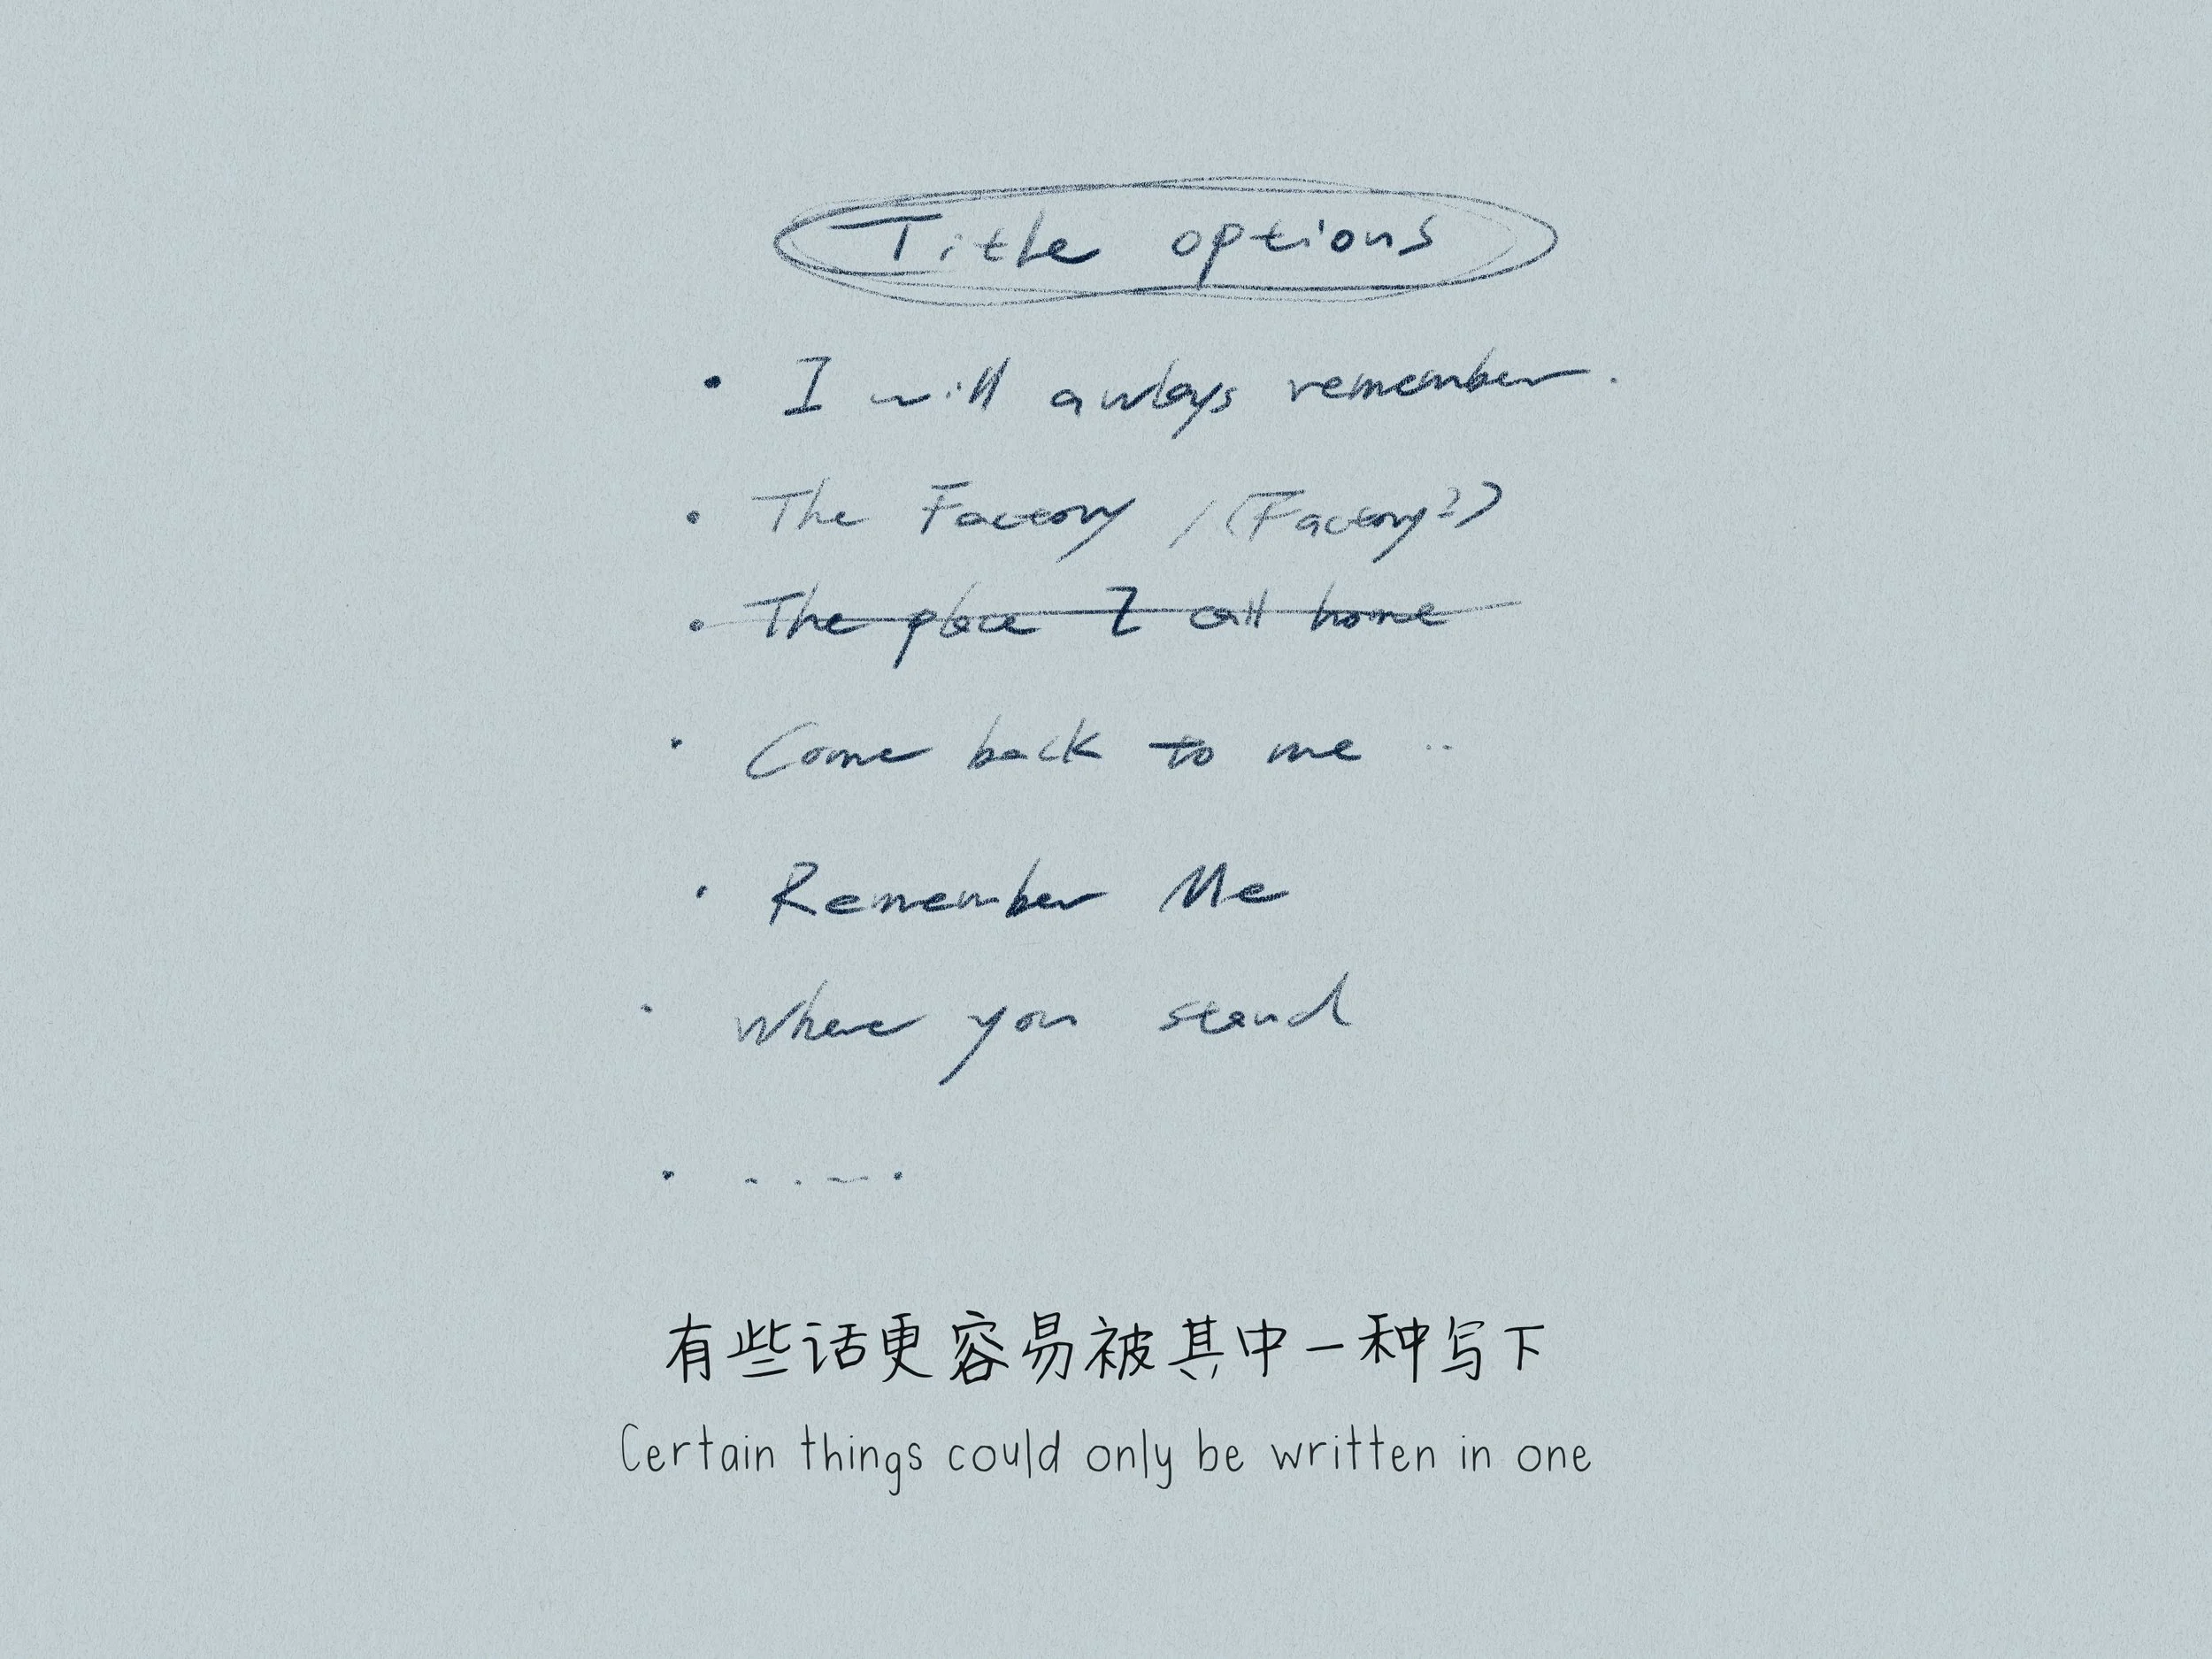 Title options
• I will always remember.
• The Factory / (Factory?)
• The place I call home
• Come back to me ..
• Remember Me
• Where you stand
• . . ~ .
有些话更容易被其中一种写下
Certain things could only be written in one